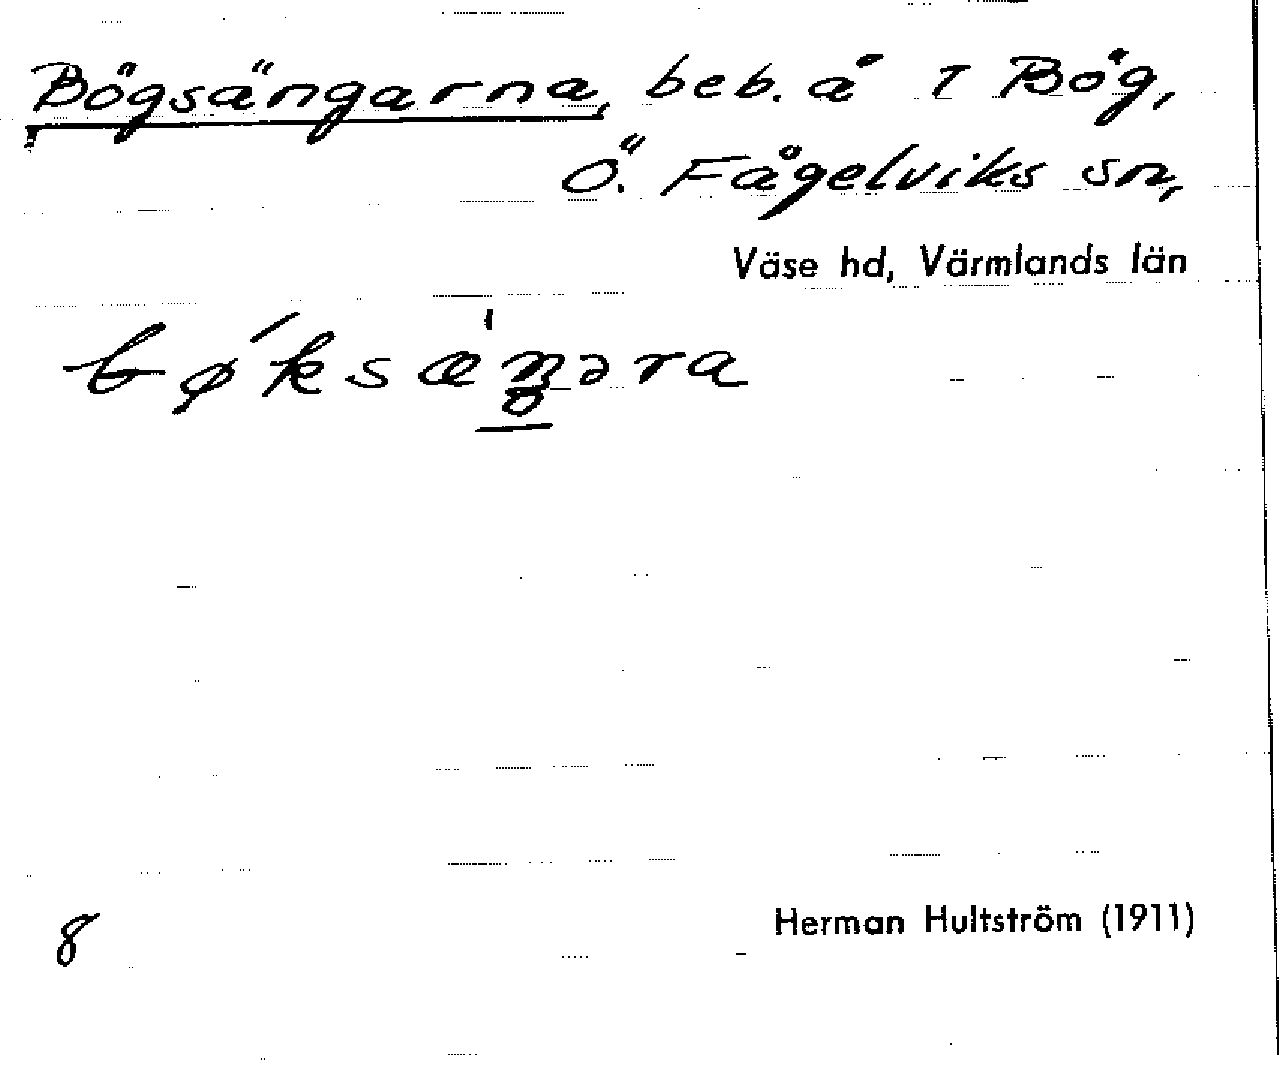 Bögsängarna, beb. å 1 Bög,
Ö. Fågelviks sn,
Väse hd, Värmlands län
8
Herman Hultström (1911)